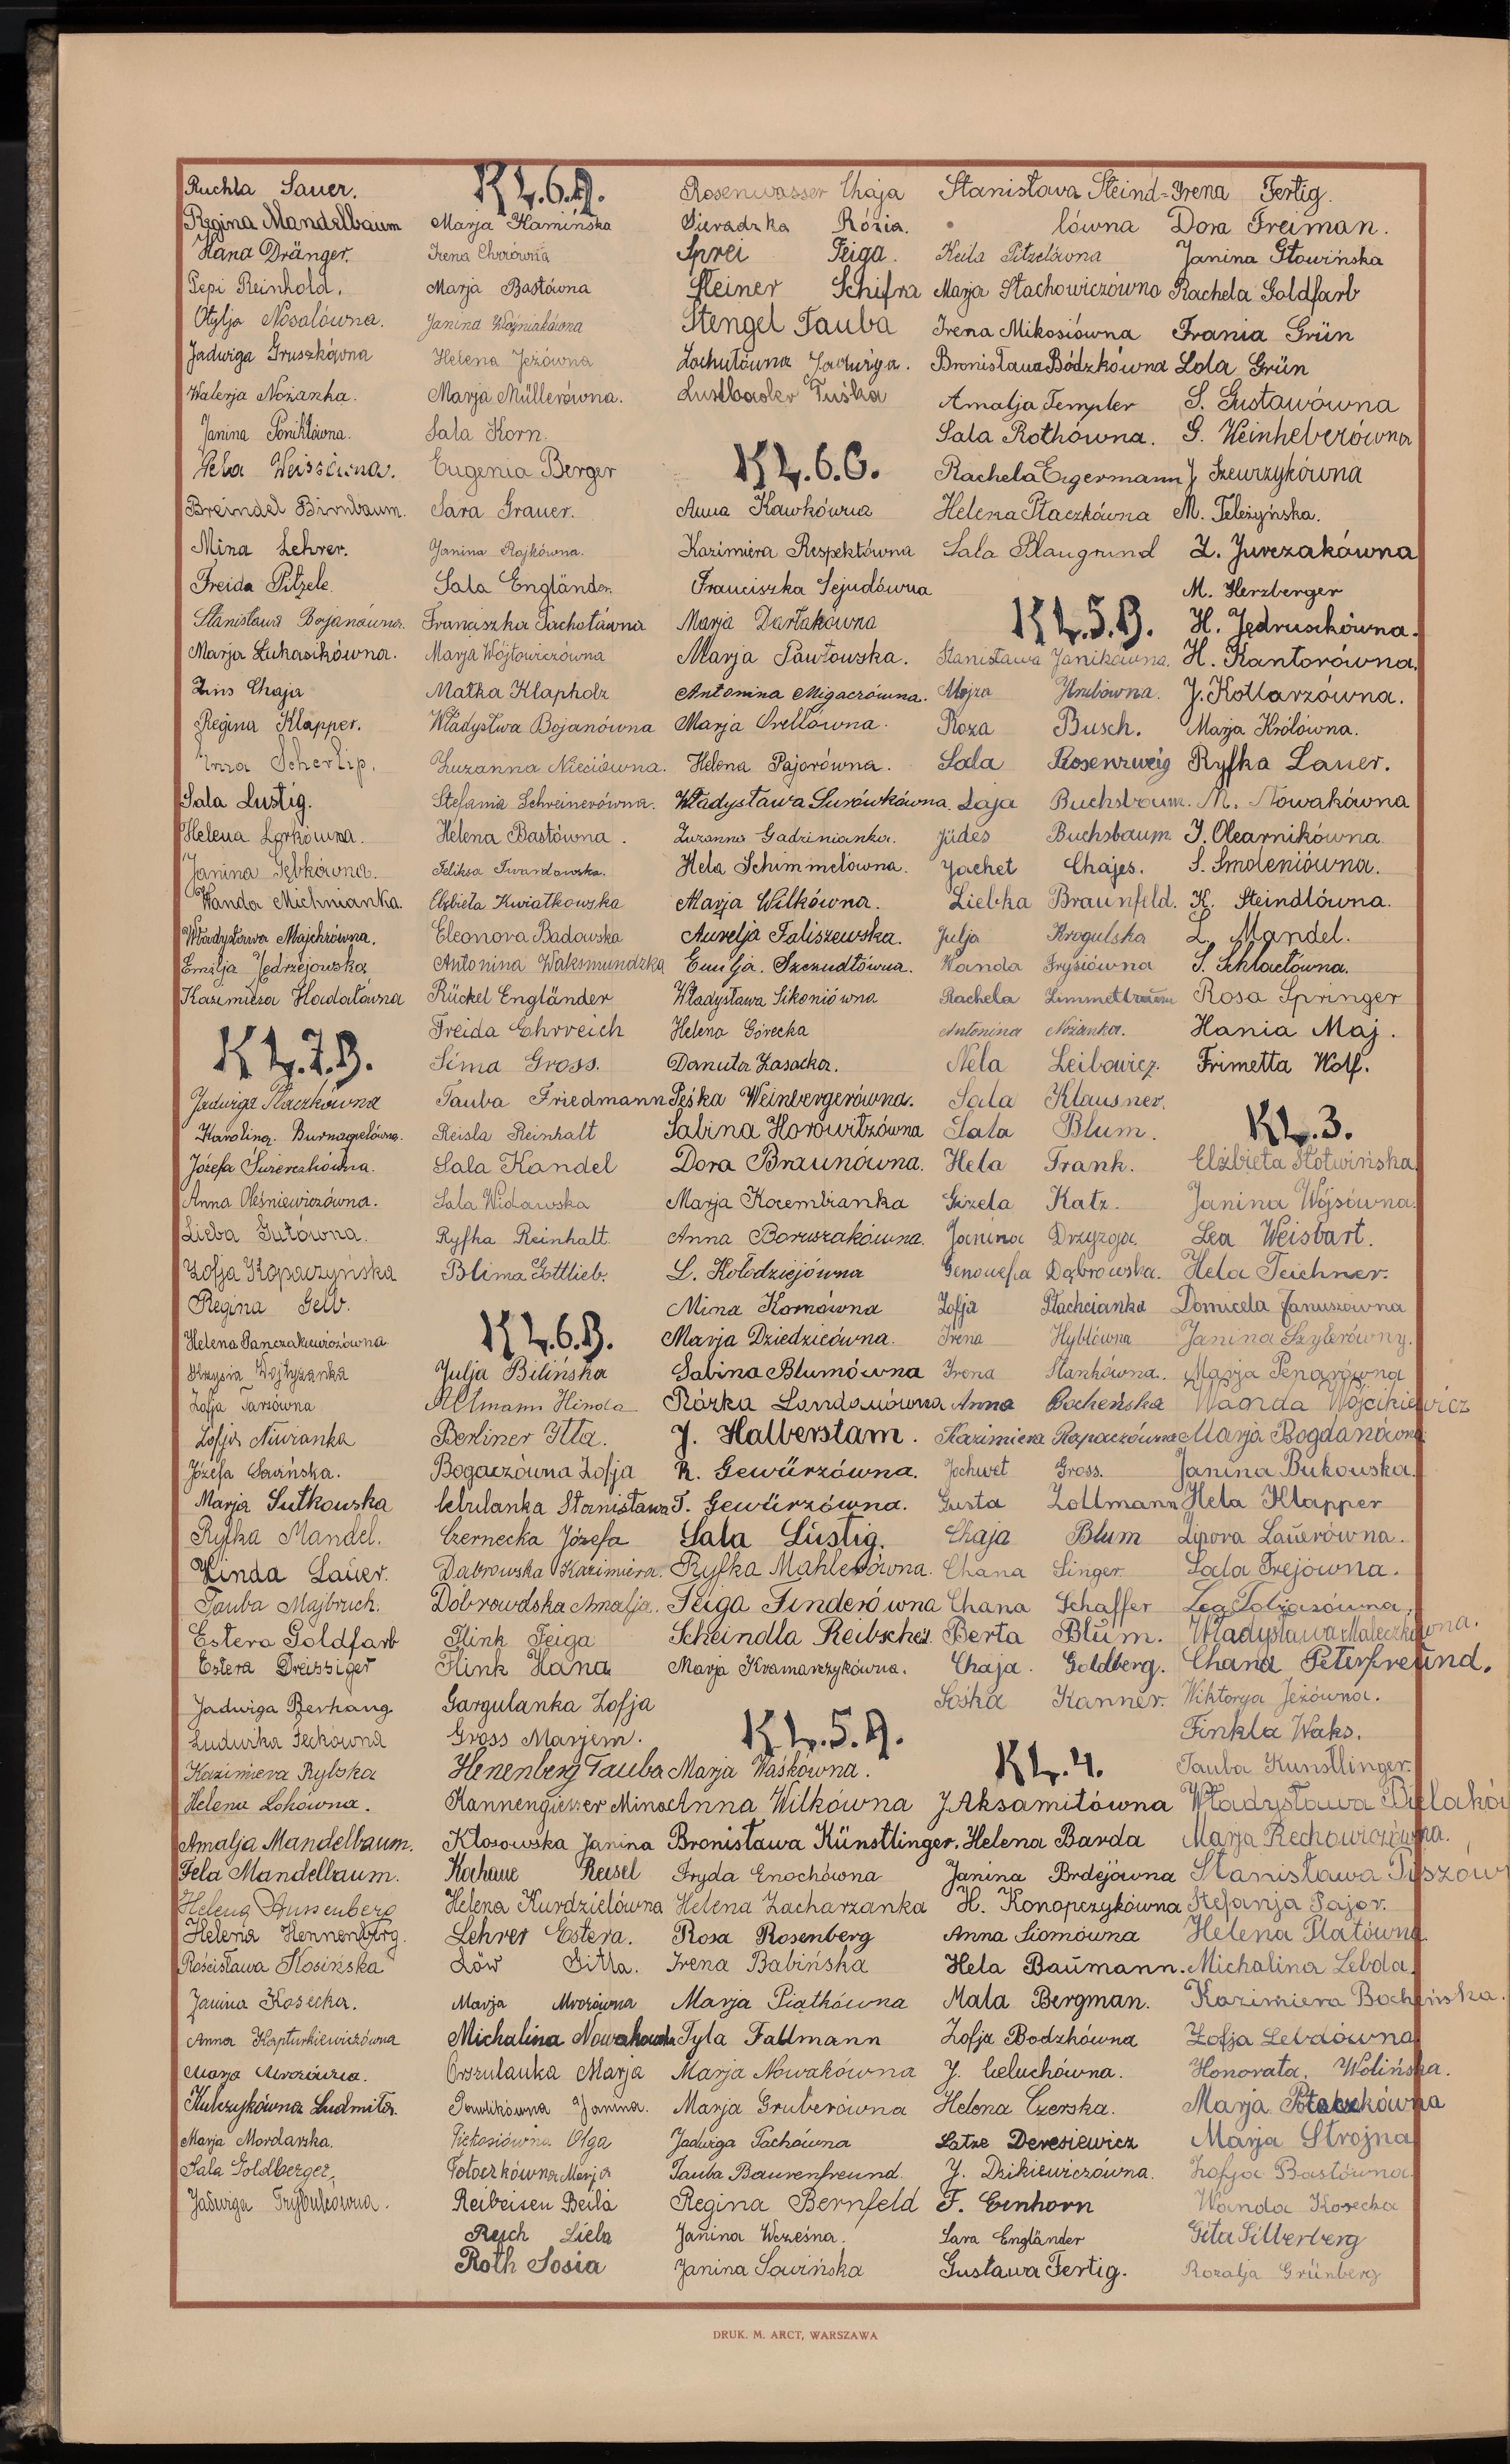 Ruchla Sauer.
Regina Mandelbaum
Hana Dränger.
Pepi Reinhold.
Otylja Nosalówna.
Jadwiga Gruszkówna
Walerja Nożanka.
Janina Poniktówna.
Gela Weissówna.
Breindel Birnbaum.
Mina Lehrer.
Freida Pitzele
Stanisława Bojanówna.
Marja Łukasikówna.
Zins Chaja
Regina Klapper.
Scherlip.
Sala Lustig.
Helena Lorkówna.
Janina Gębkówna.
Wanda Michnianka.
Władysława Majchrówna.
Emilja Jędrzejowska
Kazimiera Hadałówna
KL.7.B.
Jadwiga Ptaczkówna
Karolina. Burnagielówna.
Józefa Świerczkówna.
Anna Oleśniewiczówna.
Lieba Gutówna.
Zofja Kopaczyńska
Regina Gelb.
Helena Panczakiewiczówna
Krzysia Wojtyzanka
Zofja Tarsówna
Zofja Niuranka
Józefa Sowińska.
Marja Sutkowska
Ryfka Mandel.
Hinda Lauer.
Tauba Majbruch.
Estera Goldfarb
Estera Dreissiger
Jadwiga Berhang
Ludwika Feckówna
Kazimiera Rylska
Helena Lokówna.
Amalja Mandelbaum.
Fela Mandelbaum.
Helena Aussenberg
Helena Hennenberg.
Rościsława Kosińska
Janina Kosecka.
Anna Kapturkiewiczówna
Marja Mrozówna.
Kulczykówna Ludmiła.
Marja Mordarska.
Sala Goldberger,
Jadwiga Trybulcówna.
KL.6.A.
Marja Kamińska
Irena Chvrówna
Marja Bastówna
Janina Woźniakówna
Helena Jeżówna
Marja Müllerówna.
Sala Korn.
Eugenia Berger
Sara Grauer.
Janina Rojkówna.
Sala Engländer.
Franciszka Pachotówna
Marja Wójtowiczówna
Małka Klapholz
Władysłwa Bojanówna
Zuzanna Nieciówna.
Stefania Schreinerówna.
Helena Bastówna.
Feliksa Twardowska.
Elżbieta Kwiatkowska
Eleonora Badowska
Antonina Waksmundzka
Rückel Engländer
Freida Ehrreich
Sima Gross.
Tauba Friedmann
Reisla Reinhalt
Sala Kandel
Sala Widawska
Ryfka Reinhalt
Blima Gottlieb.
KL.6.B.
Julja Bilińska
Altmann Hinda
Berliner Itta.
Bogaczówna Zofja
Cebulanka Stanisława
Czernecka Józefa
Dąbrowska Kazimiera.
Dobrowdska Amalja.
Flink Feiga
Flink Hana
Gargulanka Zofja
Gross Marjem.
Henenberg Tauba
Kannengiesser Mina
Kłosowska Janina
Kochane Reisel
Helena Kurdzielówna
Lehrer Estera.
Löw Gitla.
Marja Mrozówna
Michalina Nowakowska
Orszulanka Marja
Pawlikówna Janina.
Piekosiówna Olga
Potoczkówna Marja
Reibeisen Beila
Reich Liela
Roth Sosia
Rosenwasser Chaja
Sieradzka Rózia.
Sprei Feiga.
Steiner Schifra
Stengel Tauba
Zachułówna Jadwiga.
Lustbader Tuśka
KL.6.C.
Anna Kawkówna
Kazimiera Respektówna
Franciszka Sejudówna
Marja Dartakówna
Marja Pawłowska.
Antonina Migaczówna.
Marja Orellówna.
Helena Pajorówna.
Władysława Surówkówna.
Zuzanna Gadzinianka.
Hela Schimmelówna.
Marja Wilkówna.
Aurelja Faliszewska.
Emilja. Szczudłówna.
Władysława Sikoniówna
Helena Górecka
Danuta Zasacka.
Peśka Weinbergerówna.
Sabina Horowitzówna
Dora Braunówna.
Marja Kocembianka
Anna Boruszakówna.
L. Kołodziejówna
Mina Kornówna
Marja Dziedzicówna.
Sabina Blumówna
Rózka Landauówna
J. Halberstam.
R. Gewürzówna.
T. Gewürzówna.
Sala Lustig.
Ryfka Mahlerówna.
Feiga Finderówna
Scheindla Reibscheid
Marja Kramarzykówna.
KL.5.A.
Marja Waśkówna.
Anna Wilkówna
Bronisława Künstlinger.
Fryda Enochówna
Helena Zacharzanka
Rosa Rosenberg
Irena Babińska
Marja Piątkówna
Tyla Fallmann
Marja Nowakówna
Marja Gruberówna
Jadwiga Pachówna
Tauba Baurenfreund.
Regina Bernfeld
Janina Wcześna.
Janina Sowińska
Stanisława Steind-
lówna
Keila Pitzelówna
Marja Stachowiczówna
Irena Mikosiówna
Bronisława Bódzkówna
Amalja Templer
Sala Rothówna.
Rachela Eigermann
Helena Ptaczkówna
Sala Blaugrund
KL.5.B.
Stanisława Janikówna.
Mojra Hrubówna.
Roza Busch.
Sala Rosenzweig
Laja Buchsbaum.
Jüdes Buchsbaum.
Jachet Chajes.
Liebka Braunfeld.
Julja Krogulska
Wanda Frysiówna
Rachela Zimmetbaum
Antonina Nożanka.
Nela Leibowicz.
Sala Klausner.
Sala Blum.
Hela Frank.
Gizela Katz.
Janina Drzyzga.
Genowefa Dąbrowska.
Zofja Stachcianka
Irena Hyblówna
Irena Stankówna.
Anna Bocheńska
Kazimiera Rozpaczówna
Jochwet Gross.
Gusta Zollmann
Chaja Blum
Chana Singer.
Chana Schaffer
Berta Blum.
Chaja. Goldberg.
Sośka Kanner.
KL.4.
J Aksamitówna
Helena Barda
Janina Brdejówna
H. Konopczykówna
Anna Siomówna
Hela Baumann.
Mala Bergman.
Zofja Bodzkówna
J. Celuchówna.
Helena Czerska.
Latze Deresiewicz
J. Dzikiewiczówna.
F. Einhorn
Sara Engländer
Gustawa Fertig.
Irena Fertig.
Dora Freiman.
Janina Głowińska
Rachela Goldfarb
Frania Grün
Lola Grün
S. Gustawówna
G. Weinheberówna
J. Szewrzykówna
M. Teleżyńska.
Z. Jurczakówna
M. Herzberger
H. Jędruschówna.
H. Kantorówna.
J. Kotlarzówna.
Marja Królówna.
Ryfka Lauer.
M. Nowakówna
J. Olearnikówna.
S. Smoleniówna.
K. Steindlówna.
L. Mandel.
S. Schlactówna.
Rosa Springer
Hania Maj.
Frimetta Wolf.
KL.3.
Elżbieta Słotwińska.
Janina Wójsówna.
Lea Weisbart.
Hela Teichner.
Domicela Januszówna
Janina Szylerówny.
Marja Penarówna
Waanda Wójcikiewicz
Marja Bogdanówna
Janina Bukowska.
Hela Klapper
Lipora Lauerówna.
Sala Frejówna.
Lea Tobiasówna.
Władysława Małeczkówna.
Chana Peterfreund.
Wiktorya Jeżówna.
Finkla Waks.
Tauba Kunstlinger.
Władysława Bielakó
Marja Rechowiczówna.
Stanisława Piszów
Stefanja Pajor.
Helena Płatówna
Michalina Lebda.
Kazimiera Bocheńska.
Zofja Lebdówna
Honorata. Wolińska.
Marja Ptaczkówna
Marja Strojna
Zofja Bastówna
Wanda Kosecka
Gita Silberberg
Rozalja Grünberg
DRUK. M. ARCT, WARSZAWA